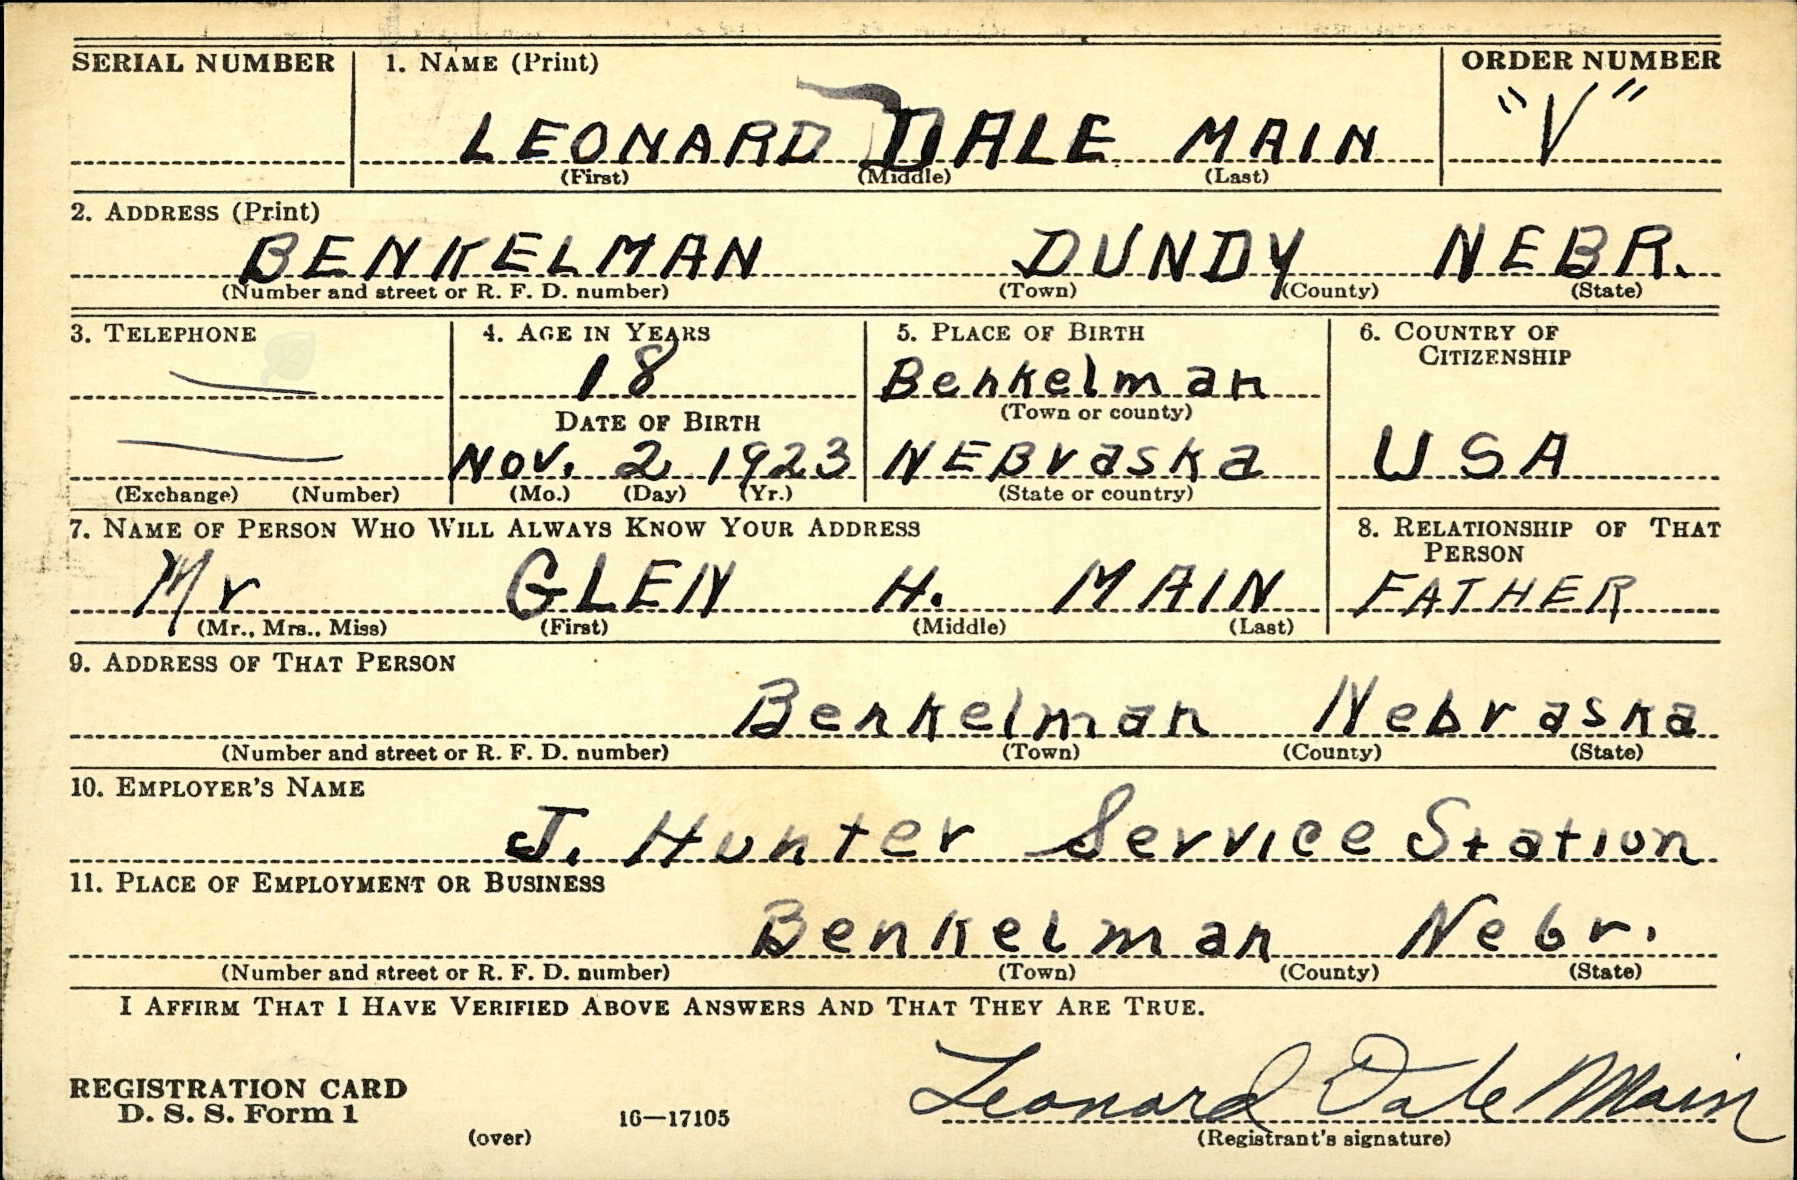 SERIAL NUMBER 1. NAME (Print) ORDER NUMBER
LEONARD DALE MAIN "V"
(First) (Middle) (Last)
2. ADDRESS (Print)
BENKELMAN DUNDY NEBR.
(Number and street or R. F. D. number) (Town) (County) (State)
3. TELEPHONE 4. AGE IN YEARS 5. PLACE OF BIRTH 6. COUNTRY OF
CITIZENSHIP
18 Benkelman
DATE OF BIRTH (Town or county)
Nov. 2 1923 NEBraska USA
(Exchange) (Number) (Mo.) (Day) (Yr.) (State or country)
7. NAME OF PERSON WHO WILL ALWAYS KNOW YOUR ADDRESS 8. RELATIONSHIP OF THAT
PERSON
Mr GLEN H. MAIN FATHER
(Mr., Mrs., Miss) (First) (Middle) (Last)
9. ADDRESS OF THAT PERSON
Benkelman Nebraska
(Number and street or R. F. D. number) (Town) (County) (State)
10. EMPLOYER'S NAME
J. Hunter Service Station
11. PLACE OF EMPLOYMENT OR BUSINESS
Benkelman Nebr.
(Number and street or R. F. D. number) (Town) (County) (State)
I AFFIRM THAT I HAVE VERIFIED ABOVE ANSWERS AND THAT THEY ARE TRUE.
Leonard Dale Main
REGISTRATION CARD
D. S. S. Form 1 16—17105
(over) (Registrant's signature)